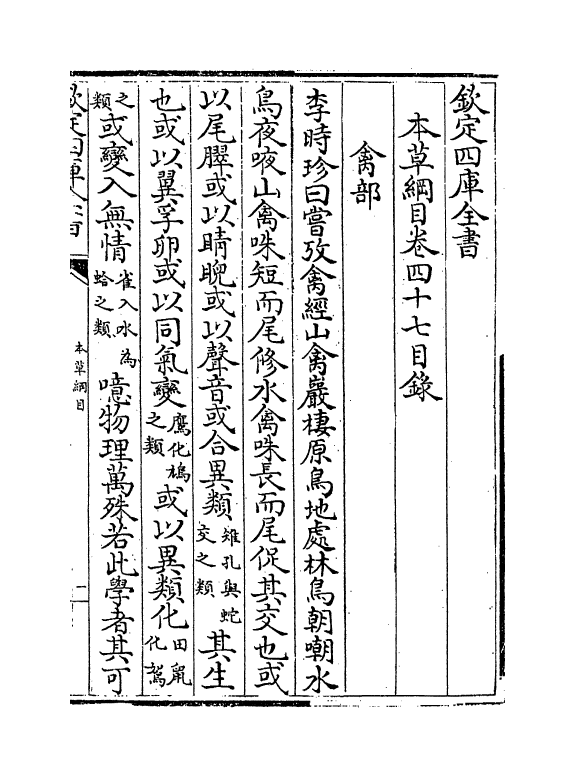 欽定四庫全書
本草綱目卷四十七目錄
禽部
李時珍曰嘗攷禽經山禽巖棲原鳥地處林鳥朝嘲水
鳥夜㖡山禽咮短而尾修水禽咮長而尾促其交也或
以尾臎或以睛睨或以聲音或合異類雉孔與蛇交之類其生
也或以翼孚卵或以同氣變鷹化鳩之類或以異類化田鼠化鴽
之類或變入無情雀入水為蛤之類噫物理萬殊若此學者其可
本草綱目